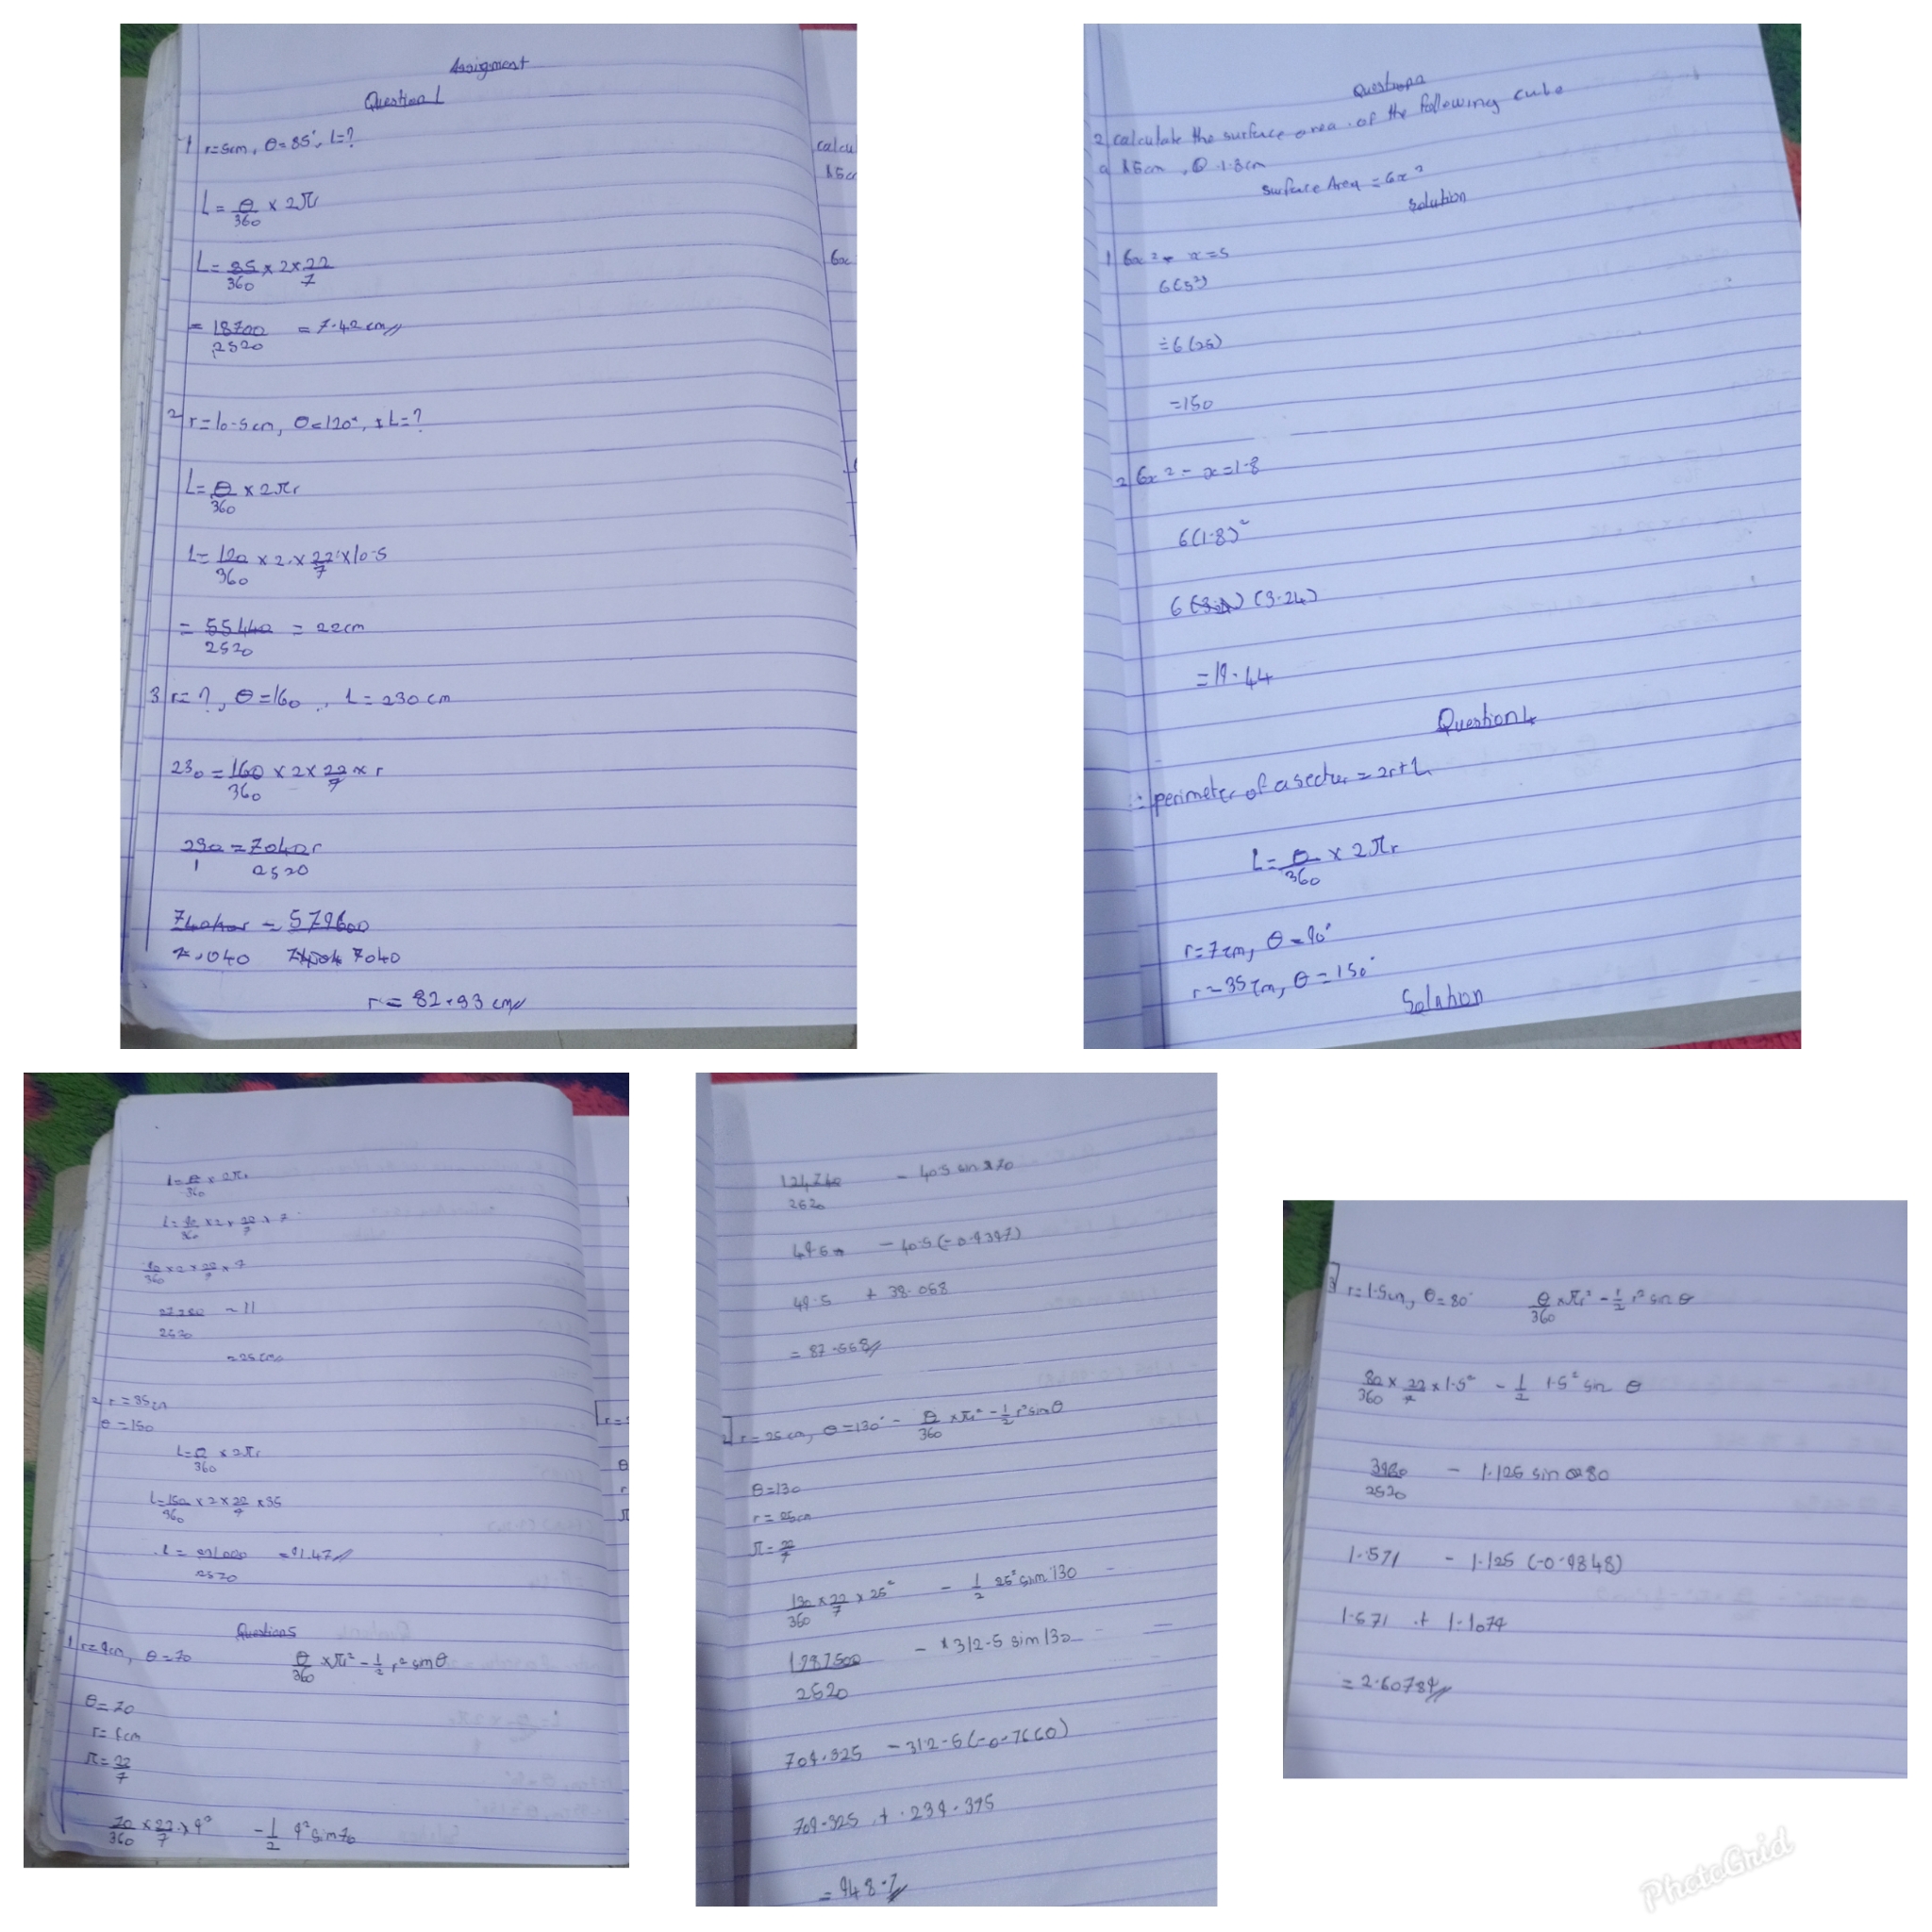 Assigment
Question 1
1 r=5cm, θ=85°, L=?
L = θ/360 × 2πr
L = 85/360 × 2 × 22/7
= 18700/2520 = 7.42 cm
2 r=10.5cm, θ=120°, L=?
L = θ/360 × 2πr
L = 120/360 × 2 × 22/7 × 10.5
= 55440/2520 = 22cm
3 r=?, θ=160, L=230cm
230 = 160/360 × 2 × 22/7 × r
230/1 = 7040r/2520
= 579600
7040
r = 82.93 cm
calcu
6x
Question
2 calculate the surface area of the following cube
a 5cm, 1.8cm
Surface Area = 6x²
Solution
1 6x² x=5
6(5²)
=6(25)
=150
2 6x² = x=1.8
6(1.8)²
6 (3.24)
=19.44
Question 4
perimeter of a sector = 2r+L
L = θ/360 × 2πr
r=7cm, θ=90°
r=35cm, θ=150°
Solution
L = θ/360 × 2πr
L = 90/360 × 2 × 22/7 × 7
90/360 × 2 × 22/7 × 7
= 11
2520
=25cm
2 r=35cm
θ=150
L = θ/360 × 2πr
L = 150/360 × 2 × 22/7 × 35
L = 2520 = 91.67
Question 5
1 r=9cm, θ=70 θ/360 × πr² - 1/2 r² sin θ
θ=70
π = 22/7
70/360 × 22/7 × 9² - 1/2 9² sin 70
124740/2520 - 40.5 sin 70
49.5 - 40.5(-0.9397)
49.5 + 38.058
= 87.558
2 r=25cm, θ=130° - θ/360 × πr² - 1/2 r² sin θ
θ=130
r=25cm
π = 22/7
130/360 × 22/7 × 25² - 1/2 25² sin 130
1787500/2520 - 312.5 sin 130
709.325 - 312.5(-0.7660)
709.325 + 239.395
= 948.7
3 r=1.5cm, θ=80° θ/360 × πr² - 1/2 r² sin θ
80/360 × 22/7 × 1.5² - 1/2 1.5² sin θ
3960/2520 - 1.125 sin 80
1.571 - 1.125 (-0.9848)
1.571 + 1.1079
= 2.6078
PhotoGrid